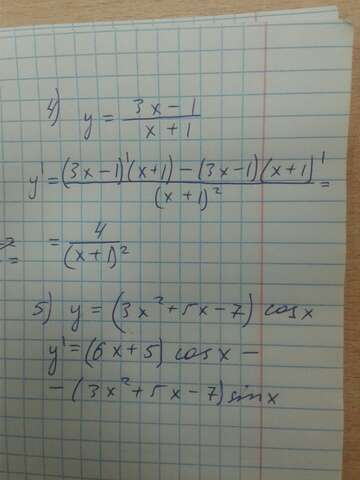 4) y = (3x − 1)/(x + 1)
y' = ((3x − 1)'(x+1) − (3x−1)(x+1)')/(x+1)² =
= 4/(x+1)²
5) y = (3x² + 5x − 7) cosx
y' = (6x + 5) cosx −
− (3x² + 5x − 7) sinx